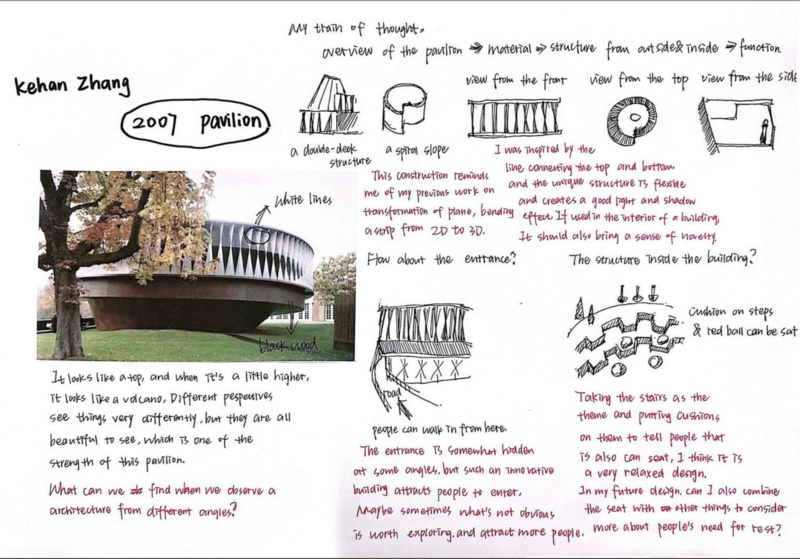 My train of thought.
overview of the pavilion → material → structure from outside & inside → function
Kehan Zhang
2007 pavilion
a double-deck
structure
a spiral slope
view from the front
view from the top
view from the side
This construction reminds
me of my previous work on
transformation of plane, bending
a strip from 2D to 3D.
I was inspired by the
line connecting the top and bottom
and the unique structure is flexible
and creates a good light and shadow
effect. If used in the interior of a building,
It should also bring a sense of novelty.
white lines
black wood
It looks like a top, and when it's a little higher,
it looks like a volcano. Different pespeutives
see things very differently, but they are all
beautiful to see, which is one of the
strength of this pavilion.
What can we find when we observe a
architecture from different angles?
How about the entrance?
road
people can walk in from here.
The entrance is somewhat hidden
at some angles. but such an innovative
building attracts people to enter,
Maybe sometimes what's not obvious
is worth exploring. and attract more people.
The structure inside the building?
Cushion on steps
& red ball can be sat
Taking the stairs as the
theme and putting cushions
on them to tell people that
is also can seat, I think it is
a very relaxed design.
In my future design. can I also combine
the seat with other things to consider
more about people's need for rest?